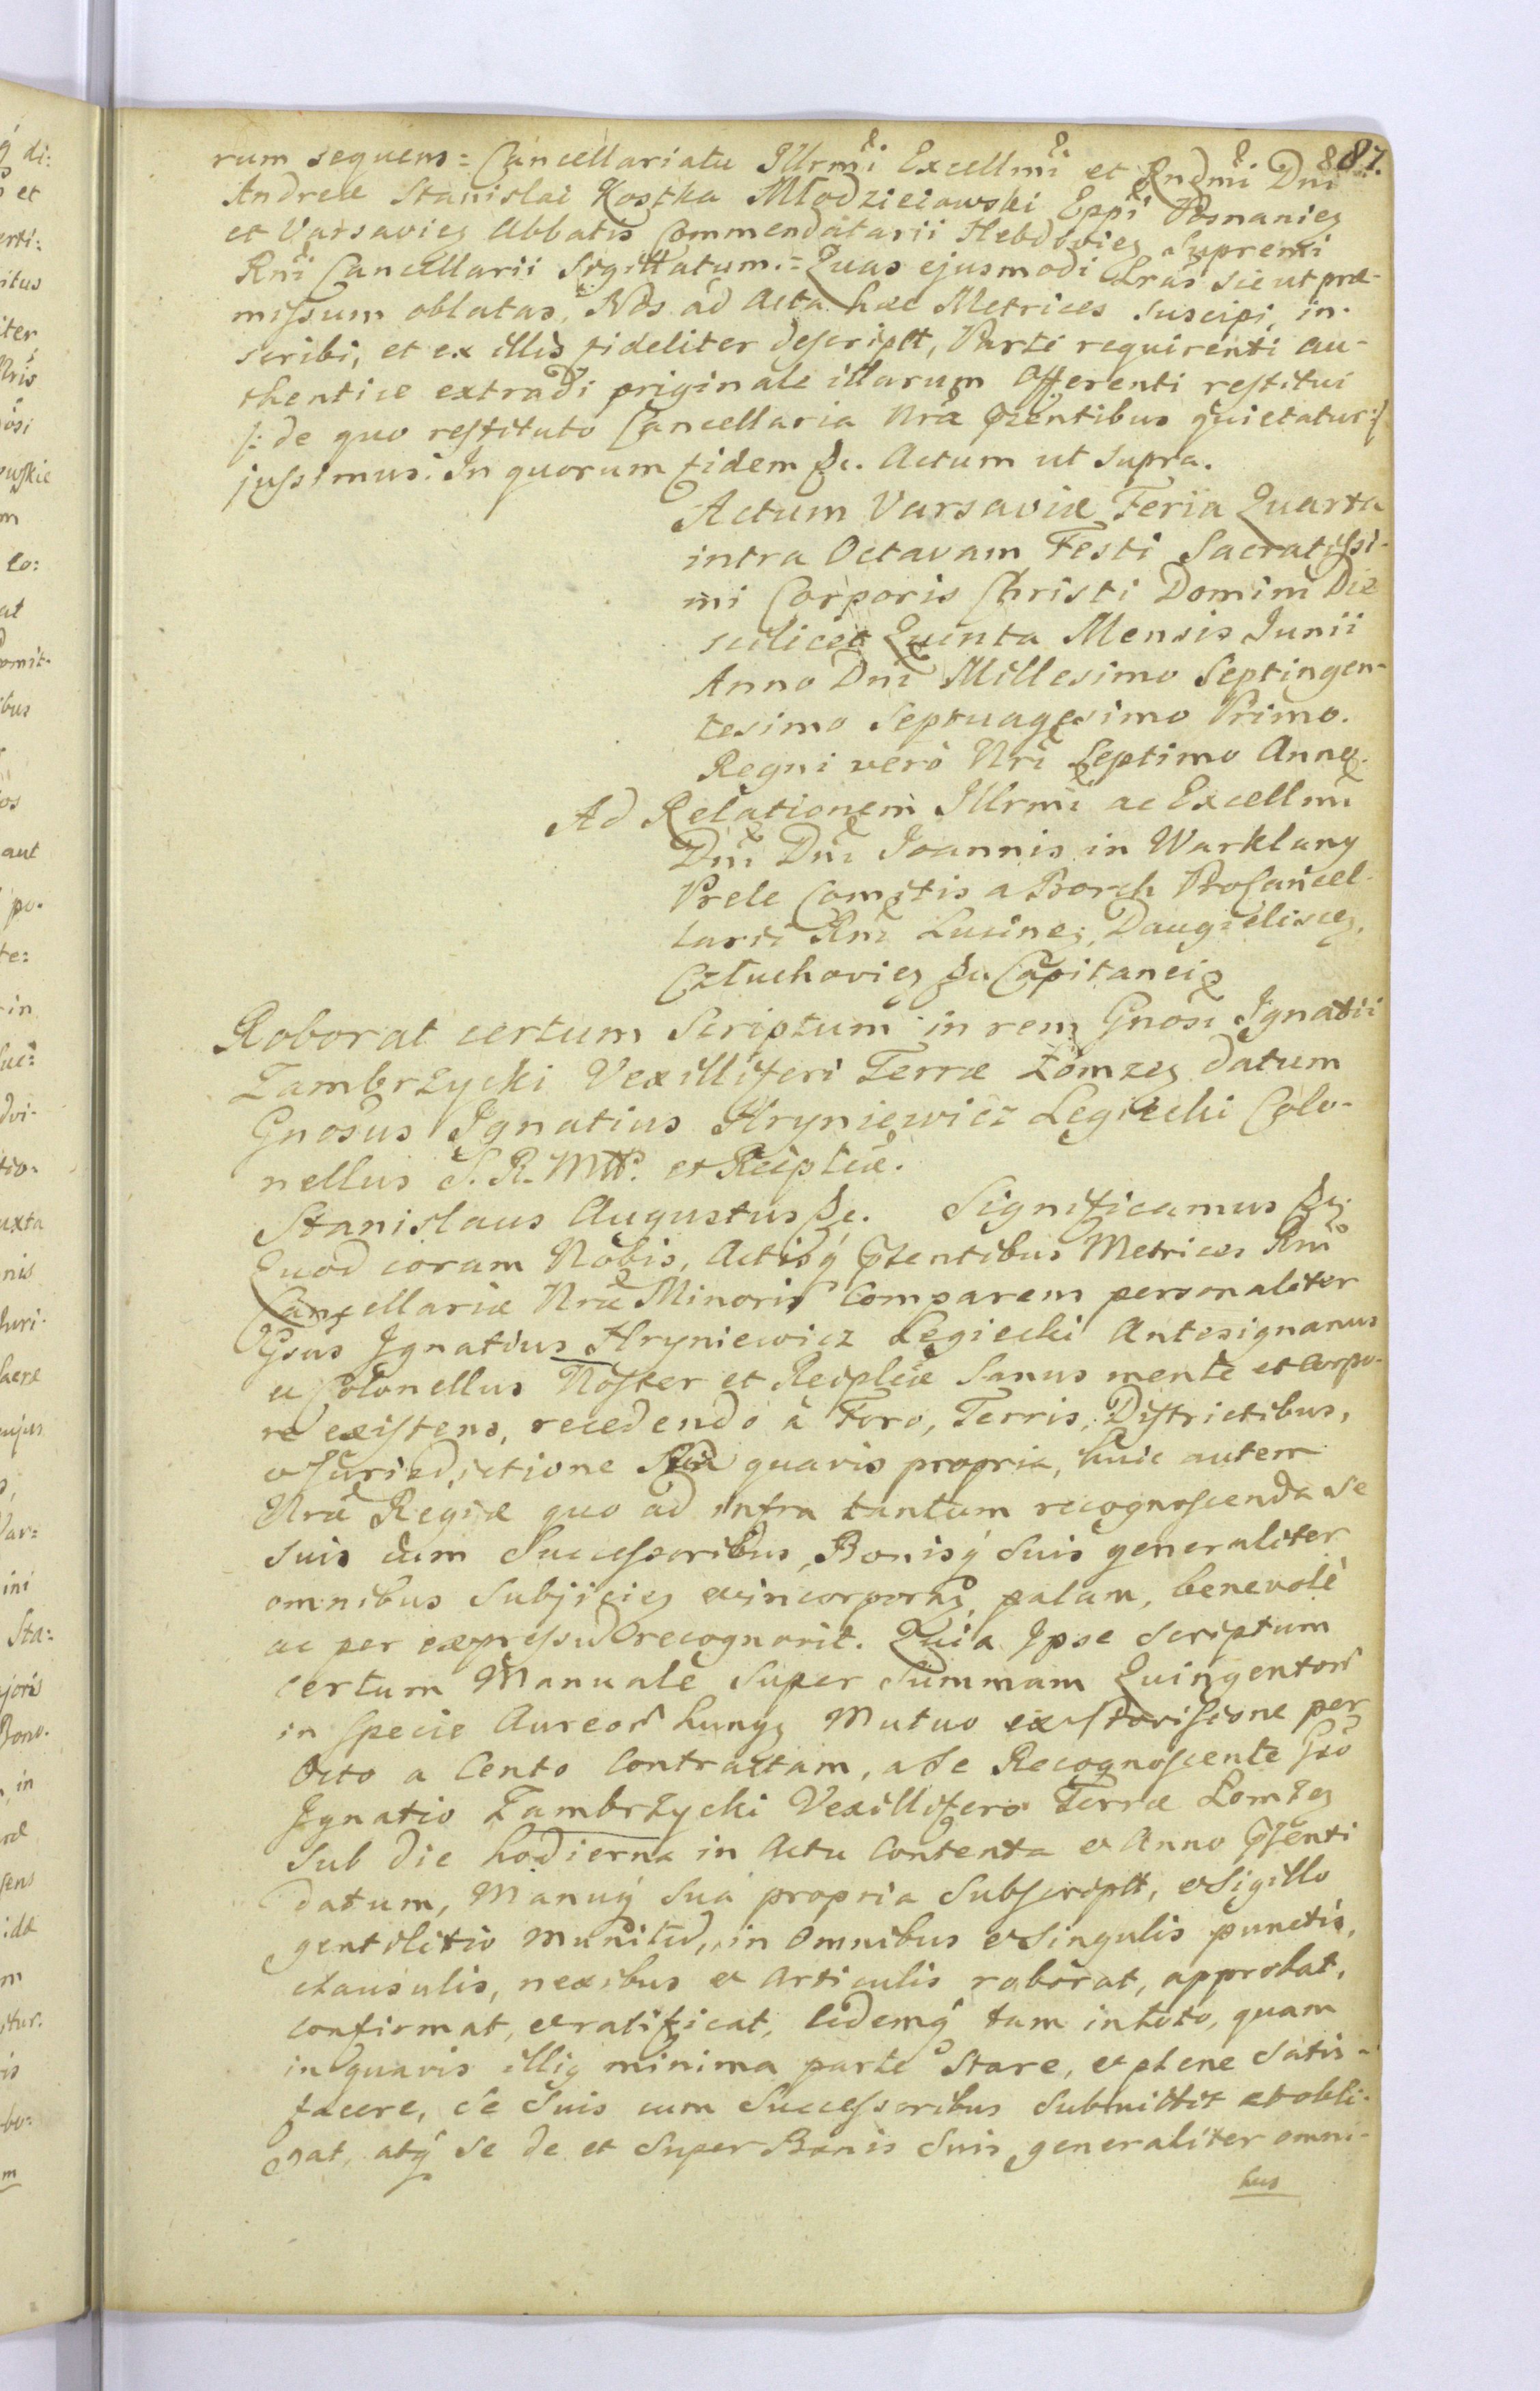 87.
rum sequens = Cancellariatu Illrmi Excellmi et Rndmi Dni
Andreæ Stanislai Kostka Młodzieiowski Eppi Posnanien
et Varsavien Abbatis Commendatarii Hebdovien Supremi
Rni Cancellarii Sigillatum. = Quas ejusmodi Lras sic ut præ-
missum oblatas, Nos ad Acta hæc Metrices suscipi, in-
scribi, et ex illis fideliter descriptt, Parti requirenti au-
thentice extradi originale illarum Offerenti restitui
/: de quo restituto Cancellaria Nra pzentibus quietatur :/
jussimus. In quorum fidem &c. Actum ut supra.
Actum Varsaviæ Feria Quarta
intra Octavam Festi Sacratissi-
mi Corporis Christi Domini Die
scilicet Quinta Mensis Junii
Anno Dni Millesimo Septingen-
tesimo Septuagesimo Primo.
Regni vero Nri Septimo Anno.
Ad Relationem Illrmi ac Excellmi
Dni Dni Joannis in Warklany
Prele Comitis a Borch ProCancel-
larii Rni Lucinen, Daugieliscen,
Człuchovien &c Capitanei
Roborat certum Scriptum in rem Gnosi Ignatii
Zambrzycki Vexilliferi Terræ Łomzen datum
Gnosus Ignatius Hryniewicz Legiecki Colo-
nellus S. R. Mtt. et Reiplicæ.
Stanislaus Augustus &c. Significamus &c.
Quod coram Nobis, Actisq pzentibus Metrices Rni
Cancellariæ Nræ Minoris Comparens personaliter
Gsus Ignatius Hryniewicz Legiecki Antesignanus
et Colonellus Noster et Reiplicæ Sanus mente et corpo-
re existens, recedendo a Foro, Terris, Districtibus,
et Jurisdictione Sua quavis propria, huic autem
Nræ Regiæ quo ad infra tantum recognoscenda se
suis cum Successoribus, Bonisq suis generaliter
omnibus Subjicien et incorporan, palam, benevole
ac per expressum recognovit. Quia Ipse Scriptum
certum Manuale super Summam Quingentor
in specie Aureor hung Mutuo ex provisione per
Octo a Cento Contractam, a Se Recognoscente Gso
Ignatio Zambrzycki Vexillifero Terræ Lomzen
Sub die hodierna in Actu Contenta et Anno pzenti
datum, Manuq Sua propria Subscriptt, et Sigillo
gentilitio munitum, in Omnibus et Singulis punctis,
clausulis, nexibus et Articulis roborat, approbat,
confirmat, et ratificat, eidemq tam in toto, quam
in quavis illius minima parte Stare, et plene Satis-
facere, Se Suis cum Successoribus Submittit et obli-
gat, atq Se de et Super Bonis Suis generaliter omni-
bus